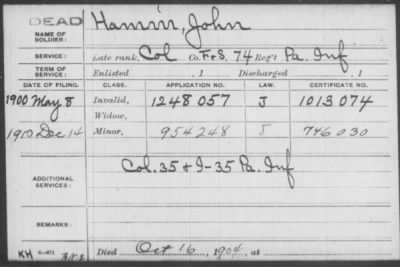 DEAD
NAME OF SOLDIER: Hamm, John
SERVICE: Late rank, Col Co. F+S, 74 Reg't Pa. Inf
TERM OF SERVICE: Enlisted , 1 Discharged , 1
DATE OF FILING. CLASS. APPLICATION NO. LAW. CERTIFICATE NO.
1900 May 8 Invalid, 1248057 J 1013074
Widow,
1910 Dec 14 Minor, 954248 J 746030
ADDITIONAL SERVICES: Col. 35 + I-35 Pa. Inf
REMARKS:
KH Died Oct 16, 1904, at